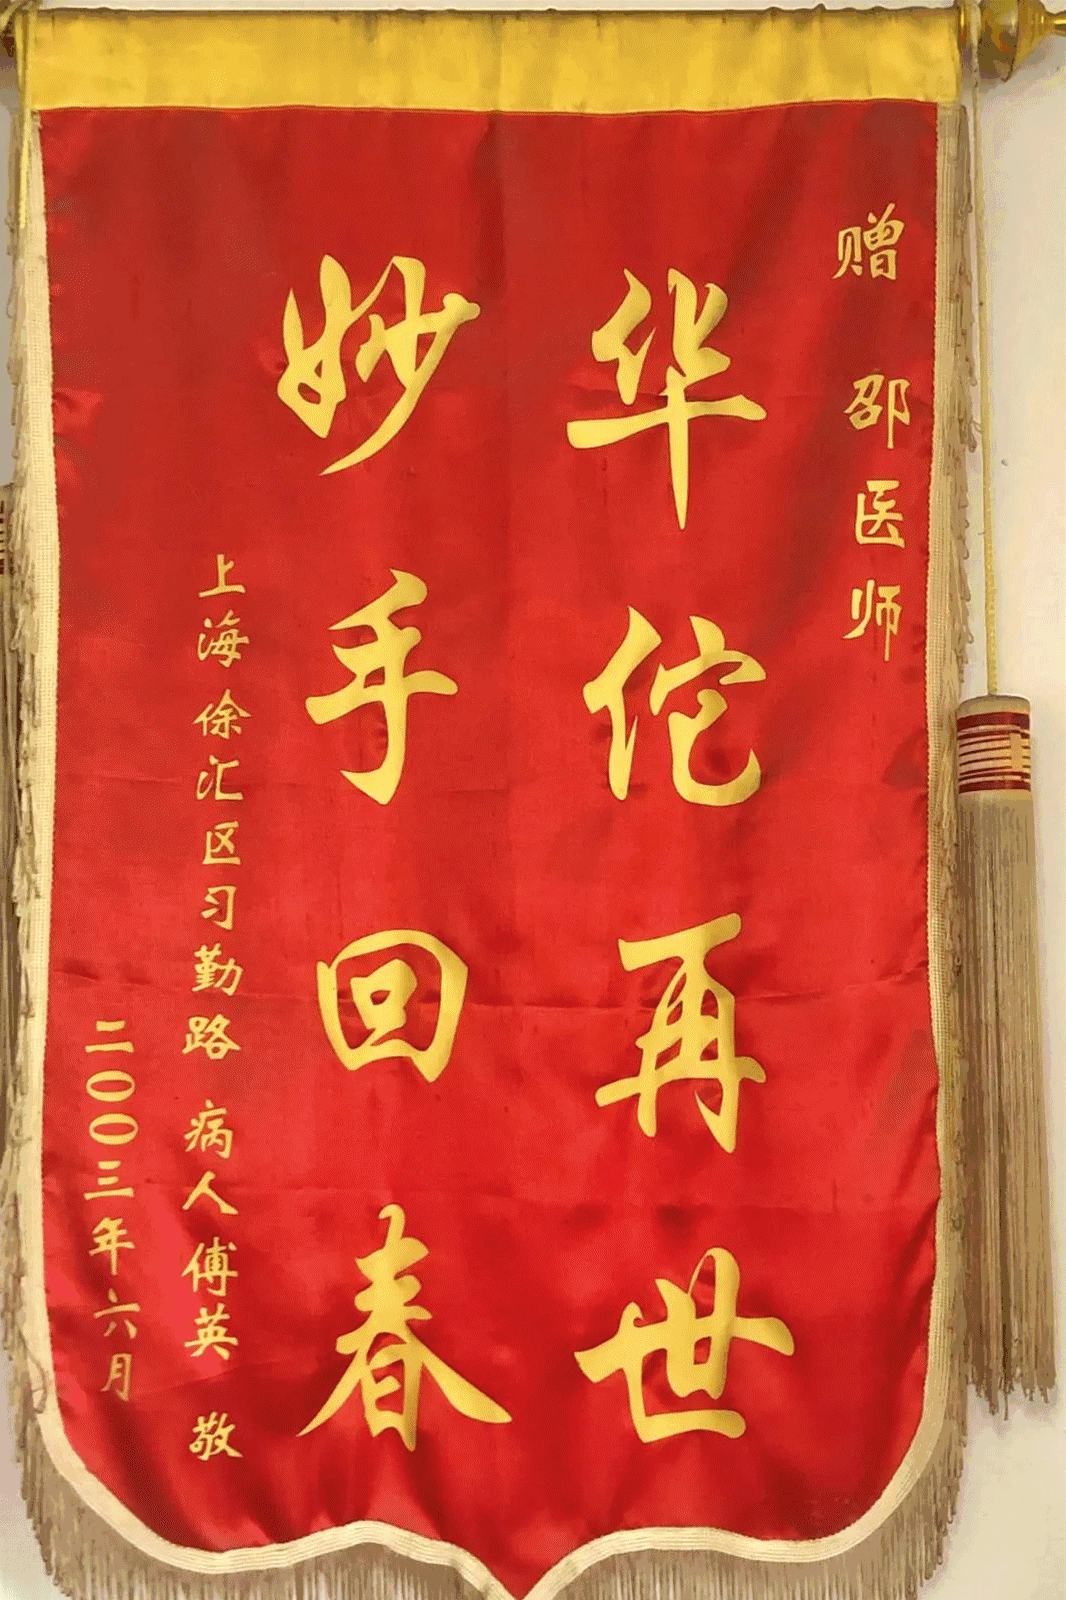 赠 邵医师
华佗再世
妙手回春
上海徐汇区习勤路 病人傅英 敬
二〇〇三年六月